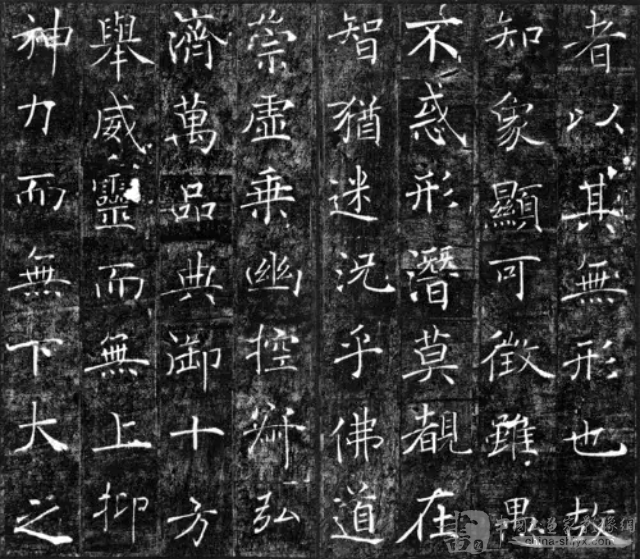 者以其無形也故
知象顯可徵雖愚
不惑形潛莫覩在
智猶迷況乎佛道
崇虛乘幽控寂弘
濟萬品典御十方
舉威靈而無上抑
神力而無下大之